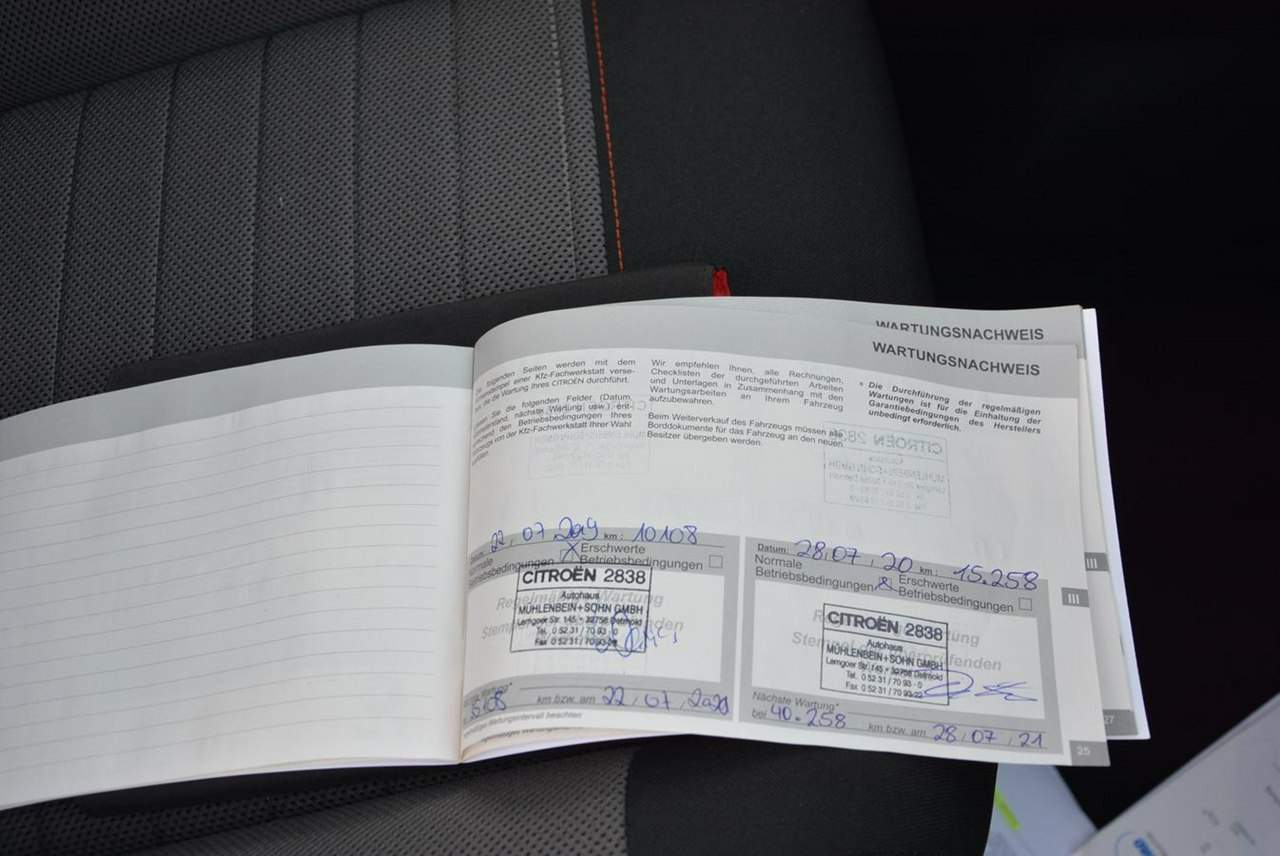 WARTUNGSNACHWEIS
WARTUNGSNACHWEIS
folgenden Seiten werden mit dem
einer Kfz-Fachwerkstatt verse-
die die Wartung Ihres CITROËN durchführt.
Sie die folgenden Felder (Datum,
nächste Wartung usw.) ent-
den Betriebsbedingungen Ihres
von der Kfz-Fachwerkstatt Ihrer Wahl
Wir empfehlen Ihnen, alle Rechnungen,
Checklisten der durchgeführten Arbeiten
und Unterlagen in Zusammenhang mit den
Wartungsarbeiten an Ihrem Fahrzeug
aufzubewahren.
Beim Weiterverkauf des Fahrzeugs müssen alle
Borddokumente für das Fahrzeug an den neuen
Besitzer übergeben werden.
Die Durchführung der regelmäßigen
Wartungen ist für die Einhaltung der
Garantiebedingungen des Herstellers
unbedingt erforderlich.
Datum: 22, 07 2019 km: 10108
Normale
Betriebsbedingungen X Erschwerte
Betriebsbedingungen
Regelmäßige Wartung
CITROËN 2838
Autohaus
MÜHLENBEIN+SOHN GMBH
Lemgoer Str. 145 • 32756 Detmold
Tel. 0 52 31 / 70 93 - 0
Fax 0 52 31 / 70 93-22
km bzw. am 22, 07, 2020
Datum: 28,07, 20 km: 15.258
Normale
Betriebsbedingungen X Erschwerte
Betriebsbedingungen
CITROËN 2838
Autohaus
MÜHLENBEIN+SOHN GMBH
Lemgoer Str. 145 • 32756 Detmold
Tel. 0 52 31 / 70 93 - 0
Fax 0 52 31 / 70 93-22
Nächste Wartung*
bei 40.258 km bzw. am 28, 07, 21
III
III
25
27